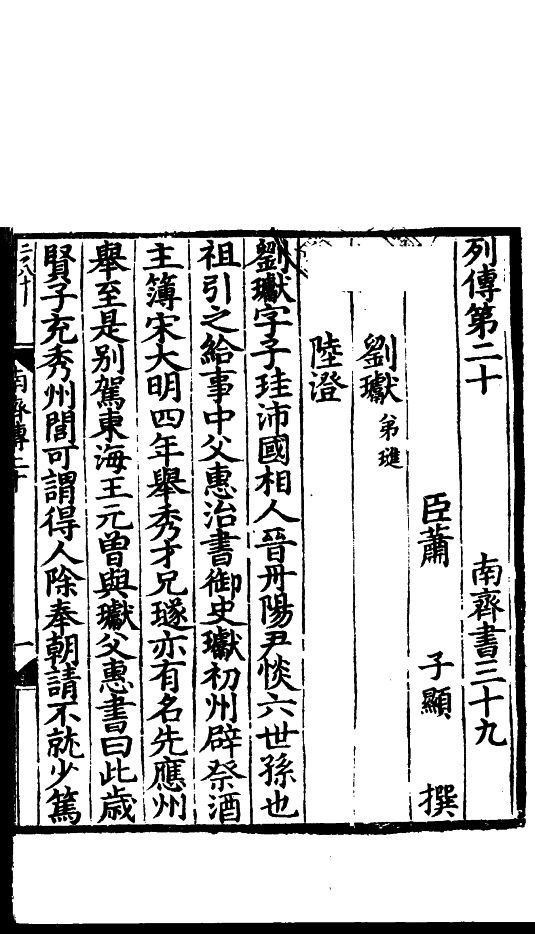 列傳第二十 南齊書三十九
臣蕭 子顯 撰
劉瓛 弟璡
陸澄
劉瓛字子珪沛國相人晉丹陽尹惔六世孫也
祖弘之給事中父惠治書御史瓛初州辟祭酒
主簿宋大明四年舉秀才兄璲亦有名先應州
舉至是别駕東海王元曾與瓛父惠書曰此歳
賢子充秀州閭可謂得人除奉朝請不就少篤
南齊傳二十 一